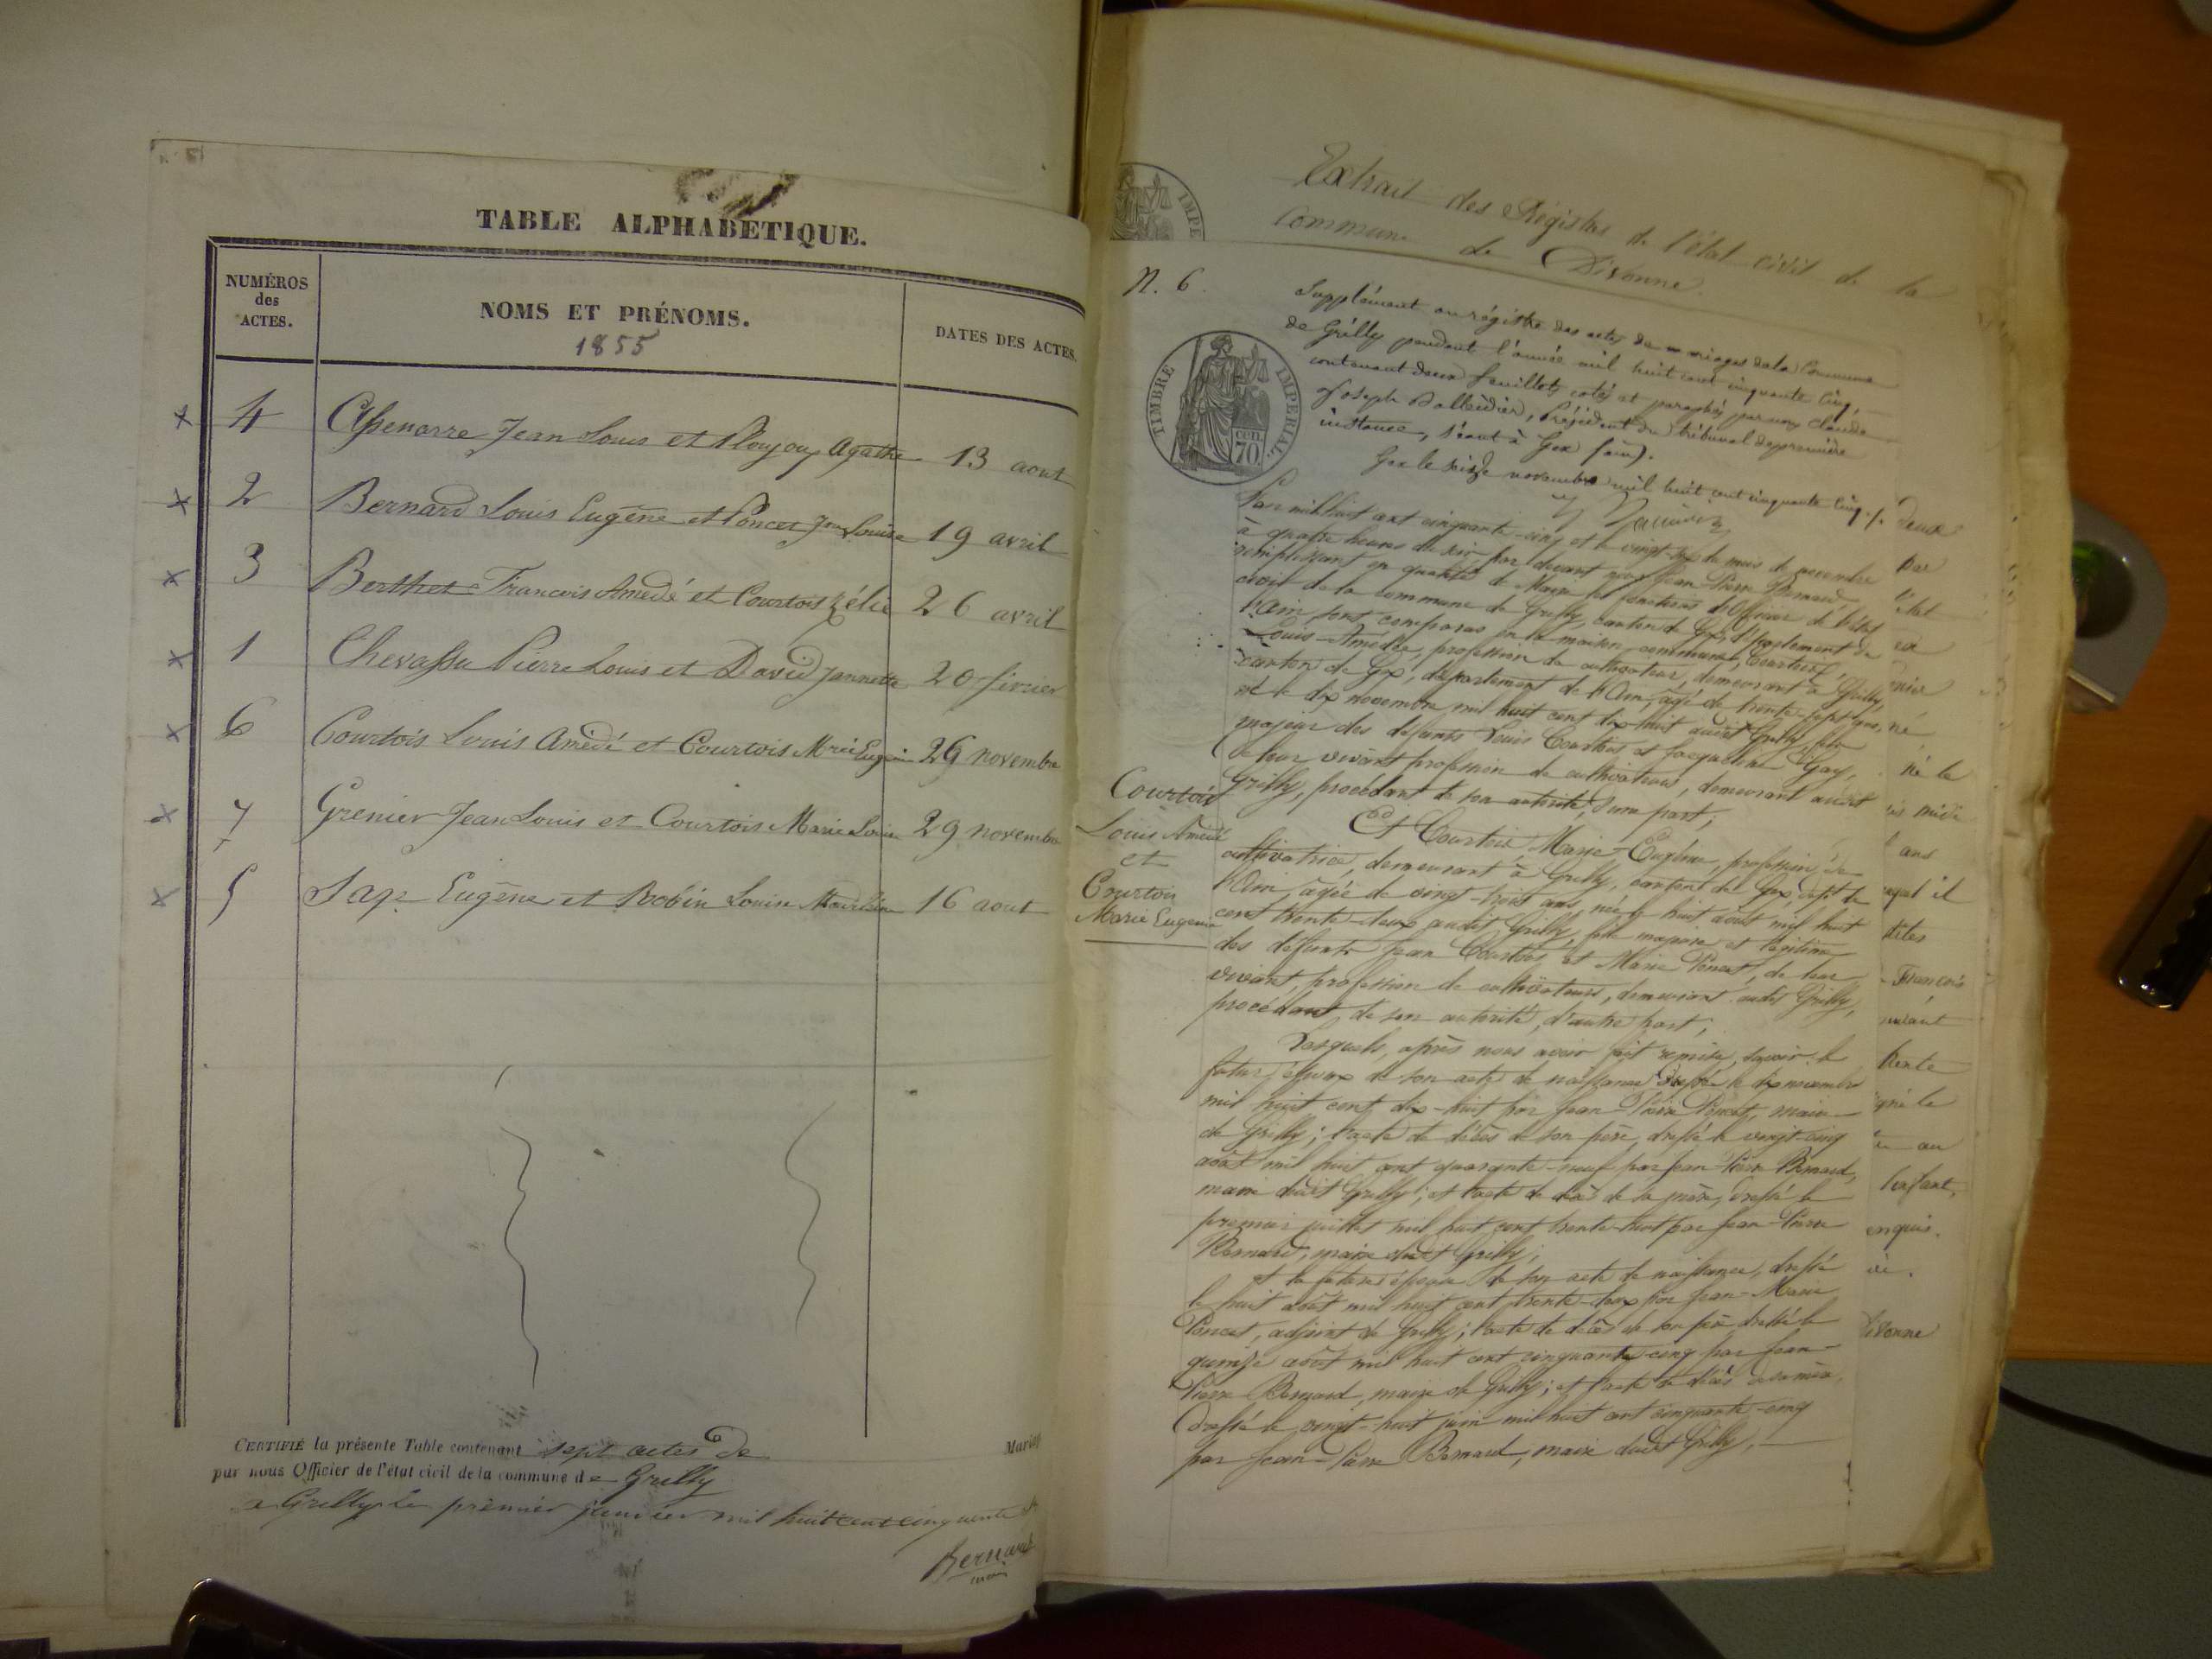 TABLE ALPHABÉTIQUE.
NUMÉROS des ACTES.
NOMS ET PRÉNOMS.
1855
DATES DES ACTES.
4 Assenarre Jean Louis et Agathe 13 aout
2 Bernard Louis Eugène et Poncet Jne Louise 19 avril
3 Berthet François Amedé et Courtois Zélie 26 avril
1 Chevassu Pierre Louis et David Jannette 20 février
6 Courtois Louis Amédé et Courtois Marie Eugénie 26 novembre
7 Grenier Jean Louis et Courtois Marie Louise 29 novembre
5 Eugène et Robin Louise 16 aout
CERTIFIÉ la présente Table contenant sept actes de Mariage
par nous Officier de l'état civil de la commune de Grilly
a Grilly le premier janvier mil huit cent cinquante
Bernard
maire
Extrait des Régistres de l'état civil de la
Commune de Divonne.
N. 6.
TIMBRE IMPÉRIAL.
cen. 70.
Supplément au régistre des actes de mariages de la Commune
de Grilly pendant l'année mil huit cent cinquante cinq,
contenant deux feuillets cotés et paraphés par nous Claude
Joseph Balleidier, Président du tribunal de première
instance, séant à Gex (ain).
Gex le seize novembre mil huit cent cinquante cinq./.
L'an mil huit cent cinquante-cinq et le vingt-six du mois de novembre
à quatre heures du soir, par devant nous Jean-Pierre Bernard
remplissant en qualité de Maire les fonctions d'Officier de l'état
civil de la commune de Grilly, canton de Gex, département de
l'Ain, sont comparus en la maison commune, Courtois,
Louis-Amédée, profession de cultivateur, demeurant à Grilly,
canton de Gex, département de l'Ain, âgé de trente-sept ans,
né le dix novembre mil huit cent dix-huit audit Grilly, fils
majeur des défunts Louis Courtois et Jacqueline Gay,
de leur vivant profession de cultivateurs, demeurant audit
Grilly, procédant de son autorité, d'une part;
Courtois
Louis Amédé
et
Courtois
Marie Eugénie
Et Courtois, Marie-Eugénie, profession de
cultivatrice, demeurant à Grilly, canton de Gex, dépt de
l'Ain, âgée de vingt-trois ans, née le huit août mil huit
cent trente-deux audit Grilly, fille majeure et légitime
des défunts Jean Courtois et Marie Poncet, de leur
vivant, profession de cultivateurs, demeurant audit Grilly,
procédant de son autorité, d'autre part;
Lesquels, après nous avoir fait remise, savoir: le
futur époux de son acte de naissance dressé le dix novembre
mil huit cent dix-huit par Jean-Pierre Poncet, maire
de Grilly; l'acte de décès de son père, dressé le vingt-cinq
août mil huit cent quarante-neuf par Jean-Pierre Bernard,
maire dudit Grilly; et l'acte de décès de sa mère, dressé le
premier juillet mil huit cent trente-huit par Jean-Pierre
Bernard, maire dudit Grilly;
et la future épouse de son acte de naissance, dressé
le huit août mil huit cent trente-deux par Jean-Marie
Poncet, adjoint de Grilly; l'acte de décès de son père dressé le
quinze août mil huit cent cinquante-cinq par Jean-
Pierre Bernard, maire de Grilly; et l'acte de décès de sa mère,
dressé le vingt-huit juin mil huit cent cinquante-cinq
par Jean-Pierre Bernard, maire dudit Grilly,
deux
par
né
né le
ans
François
trente
Divonne